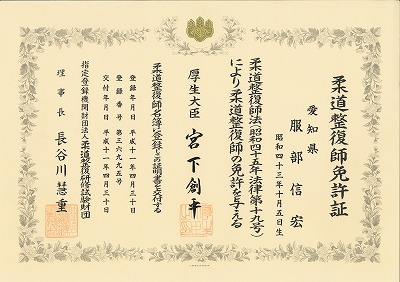 柔道整復師免許証
愛知県
服部信宏
昭和四十三年十月五日生
柔道整復師法(昭和四十五年法律第十九号)
により柔道整復師の免許を与える
厚生大臣 宮下創平
柔道整復師名簿に登録したことの証明書を交付する
登録年月日 平成十一年四月三十日
登録番号 第三六九九五号
交付年月日 平成十一年四月三十日
指定登録機関財団法人柔道整復研修試験財団
理事長 長谷川慧重